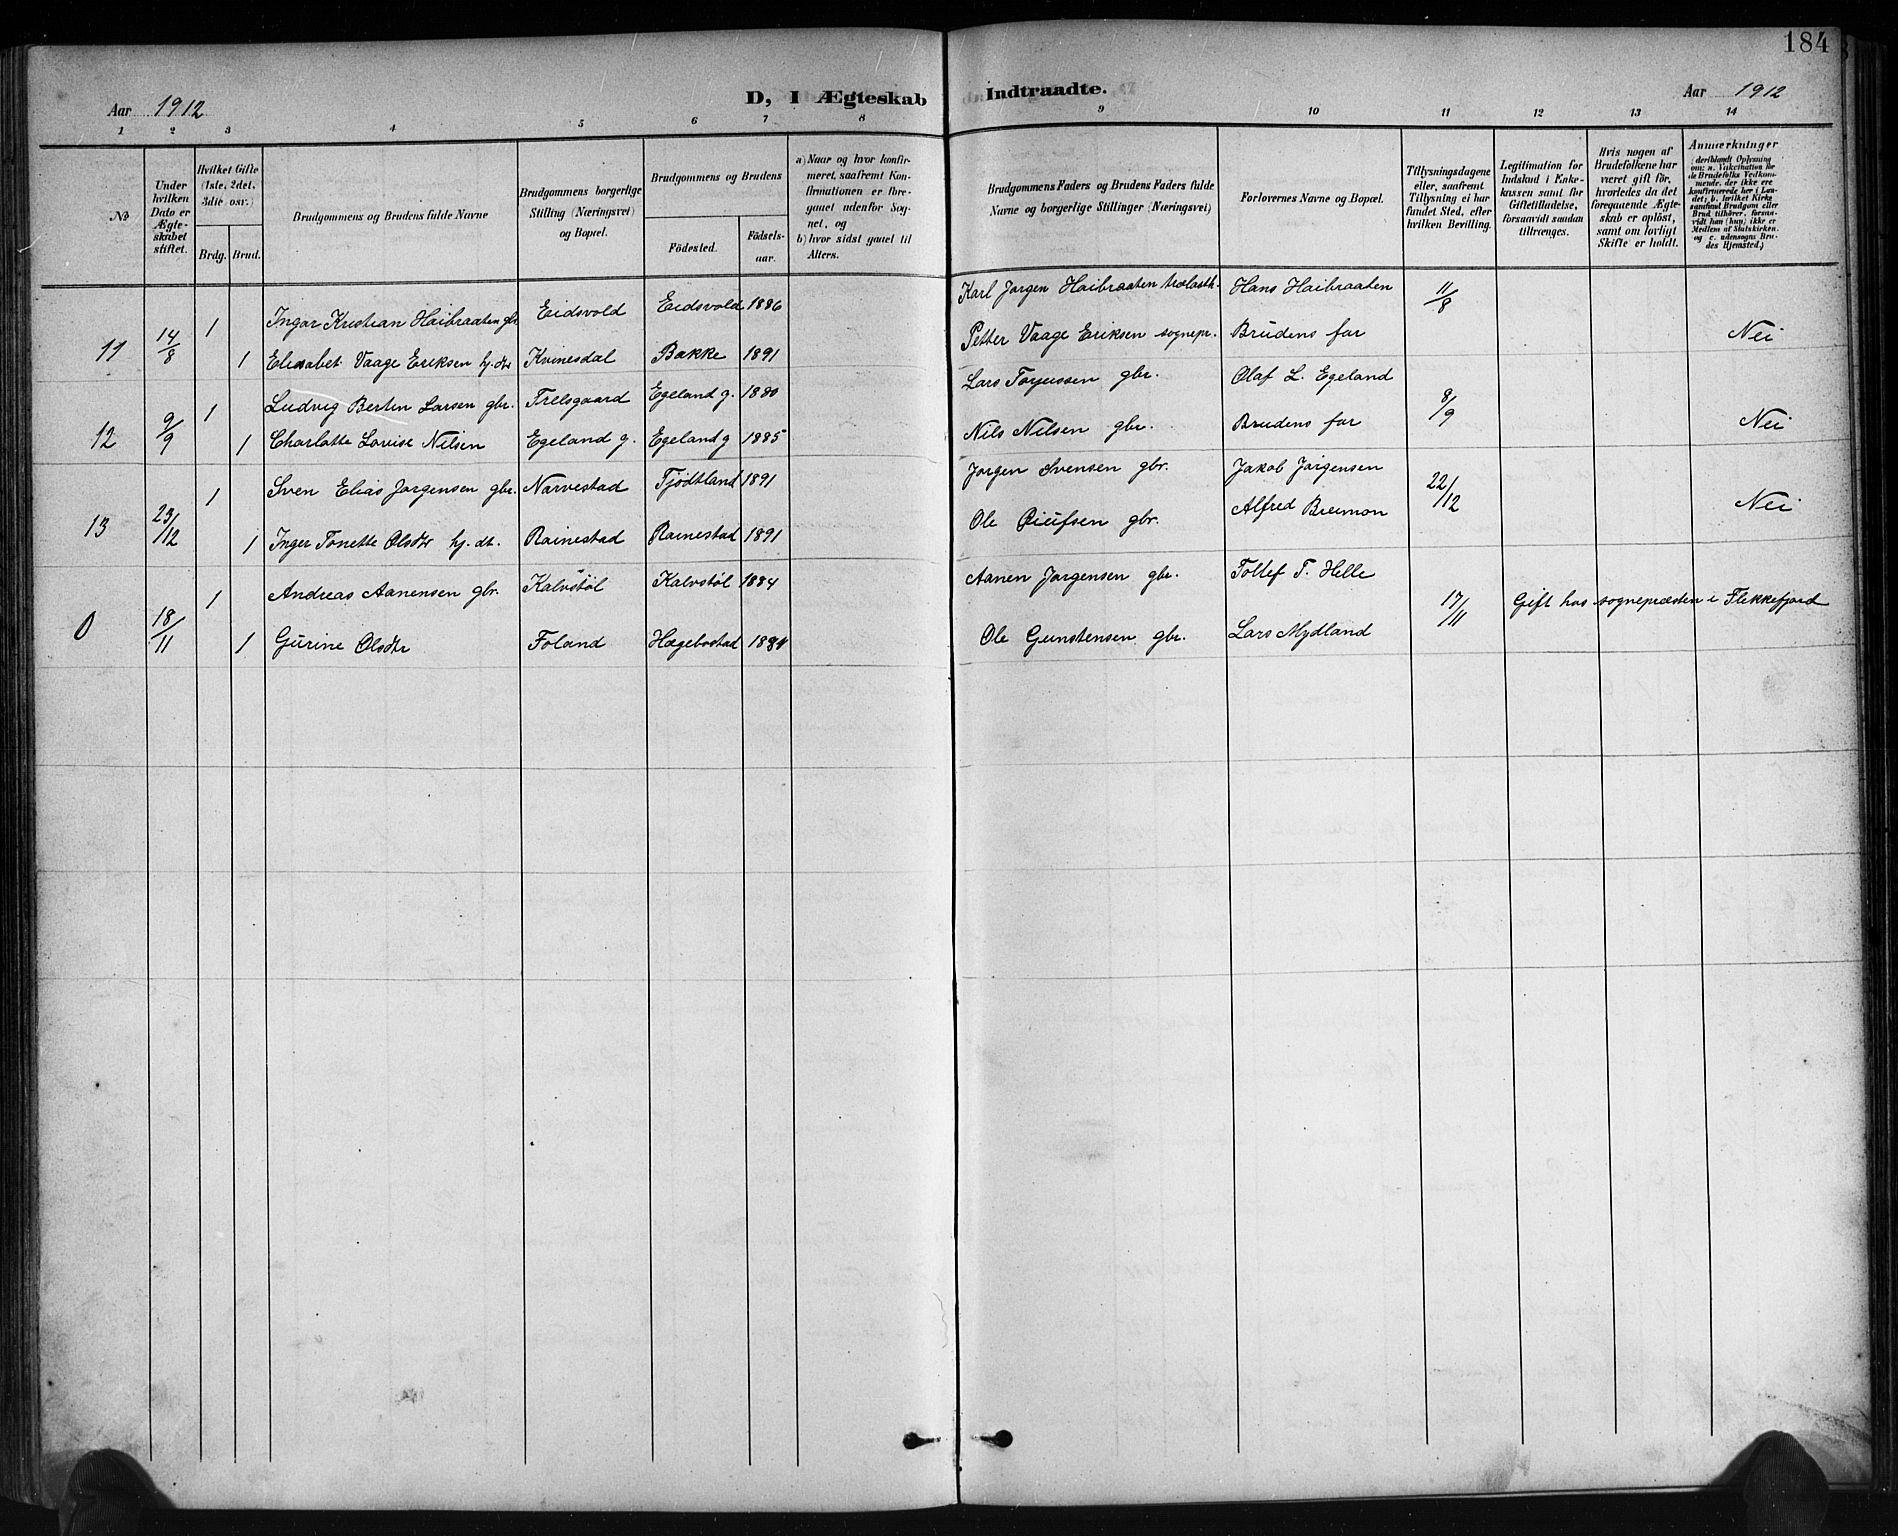 184
Aar 1912 D, I Ægteskab Indtraadte. Aar 1912
1 2 3 4 5 6 7 8 9 10 11 12 13 14
№
Under hvilken Dato er Ægte-skabet stiftet.
Hvilket Gifte (1ste, 2det, 3die osv.)
Brdg. Brud.
Brudgommens og Brudens fulde Navne
Brudgommens borgerlige Stilling (Næringsvei) og Bopæl.
Brudgommens og Brudens
Födested. Födsels-aar.
a) Naar og hvor konfir-meret, saafremt Kon-firmationen er fore-gaaet udenfor Sog-net, og
b) hvor sidst gaaet til Alters.
Brudgommens Faders og Brudens Faders fulde Navne og borgerlige Stillinger (Næringsvei)
Forlovernes Navne og Bopæl.
Tillysningsdagene eller, saafremt Tillysning ei har fundet Sted, efter hvilken Bevilling.
Legitimation for Indskud i Enke-kassen samt for Giftetilladelse, forsaavidt saadan tiltrænges.
Hvis nogen af Brudefolkene har været gift för, hvorledes da det foregaaende Ægte-skab er oplöst, samt om lovligt Skifte er holdt.
Anmærkninger (deriblandt Oplysning om: a. Vakcination for de Brudefolks Vedkom-mende, der ikke ere konfirmerede her i Lan-det; b. hvilket Kirke-samfund Brudgom eller Brud tilhörer, forsaa-vidt han (hun) ikke er Medlem af Statskirken, og c. udensogns Bru-des Hjemsted.)
11 14/8 1 Ingar Kristian Haibraaten gbr. Eidsvold Eidsvold 1886 Karl Jorgen Haibraaten Hans Haibraaten 11/8
1 Elisabet Vaage Eriksen hj.dtr Kvinesdal Bakke 1891 Petter Vaage Eriksen sognepr. Brudens far Nei
12 9/9 1 Ludvig Bertin Larsen gbr. Trelsgaard Egeland g. 1880 Lars Torjussen gbr. Olaf L. Egeland 8/9
1 Charlotte Lovise Nilsen Egeland g. Egeland g 1885 Nils Nilsen gbr. Brudens far Nei
13 23/12 1 Sven Elias Jorgensen gbr. Narvestad Fjödtland 1891 Jorgen Svensen gbr. Jakob Jörgensen 22/12
1 Inger Tonette Olsdtr hj. dt. Rainestad Rainestad 1891 Ole gbr. Alfred Breimon Nei
0 18/11 1 Andreas Aanensen gbr. Kalvstöl Kalvstöl 1884 Aanen Jorgensen gbr. Tollef T. Helle 17/11 Gift hos sognepræsten i Flekkefjord
1 Gurine Olsdtr Foland Hægebostad 1884 Ole Gunstensen gbr. Lars Mydland